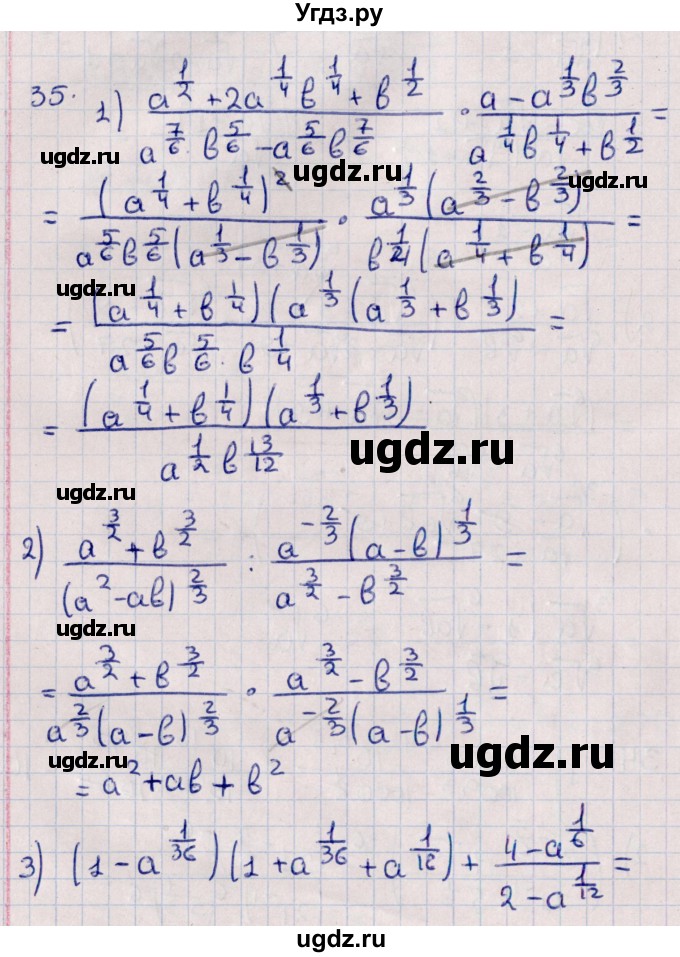 Угдз.ру
35. 1) (a^{1/2} + 2a^{1/4} в^{1/4} + в^{1/2}) / (a^{7/6} · в^{5/6} - a^{5/6} в^{7/6}) · (a - a^{1/3} в^{2/3}) / (a^{1/4} в^{1/4} + в^{1/2}) =
ugdz.ru
ugdz.ru
ugdz.ru
= (a^{1/4} + в^{1/4})^2 / (a^{5/6} в^{5/6} (a^{1/3} - в^{1/3})) · a^{1/3} (a^{2/3} - в^{2/3}) / (в^{1/4} (a^{1/4} + в^{1/4})) =
ugdz.ru
= [a^{1/4} + в^{1/4}) (a^{1/3} (a^{1/3} + в^{1/3}) / (a^{5/6} в^{5/6} · в^{1/4}) =
ugdz.ru
= (a^{1/4} + в^{1/4}) (a^{1/3} + в^{1/3}) / (a^{1/2} в^{13/12})
ugdz.ru
ugdz.ru
2) (a^{3/2} + в^{3/2}) / (a^2 - aв)^{2/3} : a^{-2/3} (a - в)^{1/3} / (a^{3/2} - в^{3/2}) =
ugdz.ru
= (a^{3/2} + в^{3/2}) / (a^{2/3} (a - в)^{2/3}) · (a^{3/2} - в^{3/2}) / (a^{-2/3} (a - в)^{1/3}) =
ugdz.ru
ugdz.ru
= a^2 + aв + в^2
3) (1 - a^{1/36}) (1 + a^{1/36} + a^{1/18}) + (4 - a^{1/6}) / (2 - a^{1/12}) =
ugdz.ru
ugdz.ru